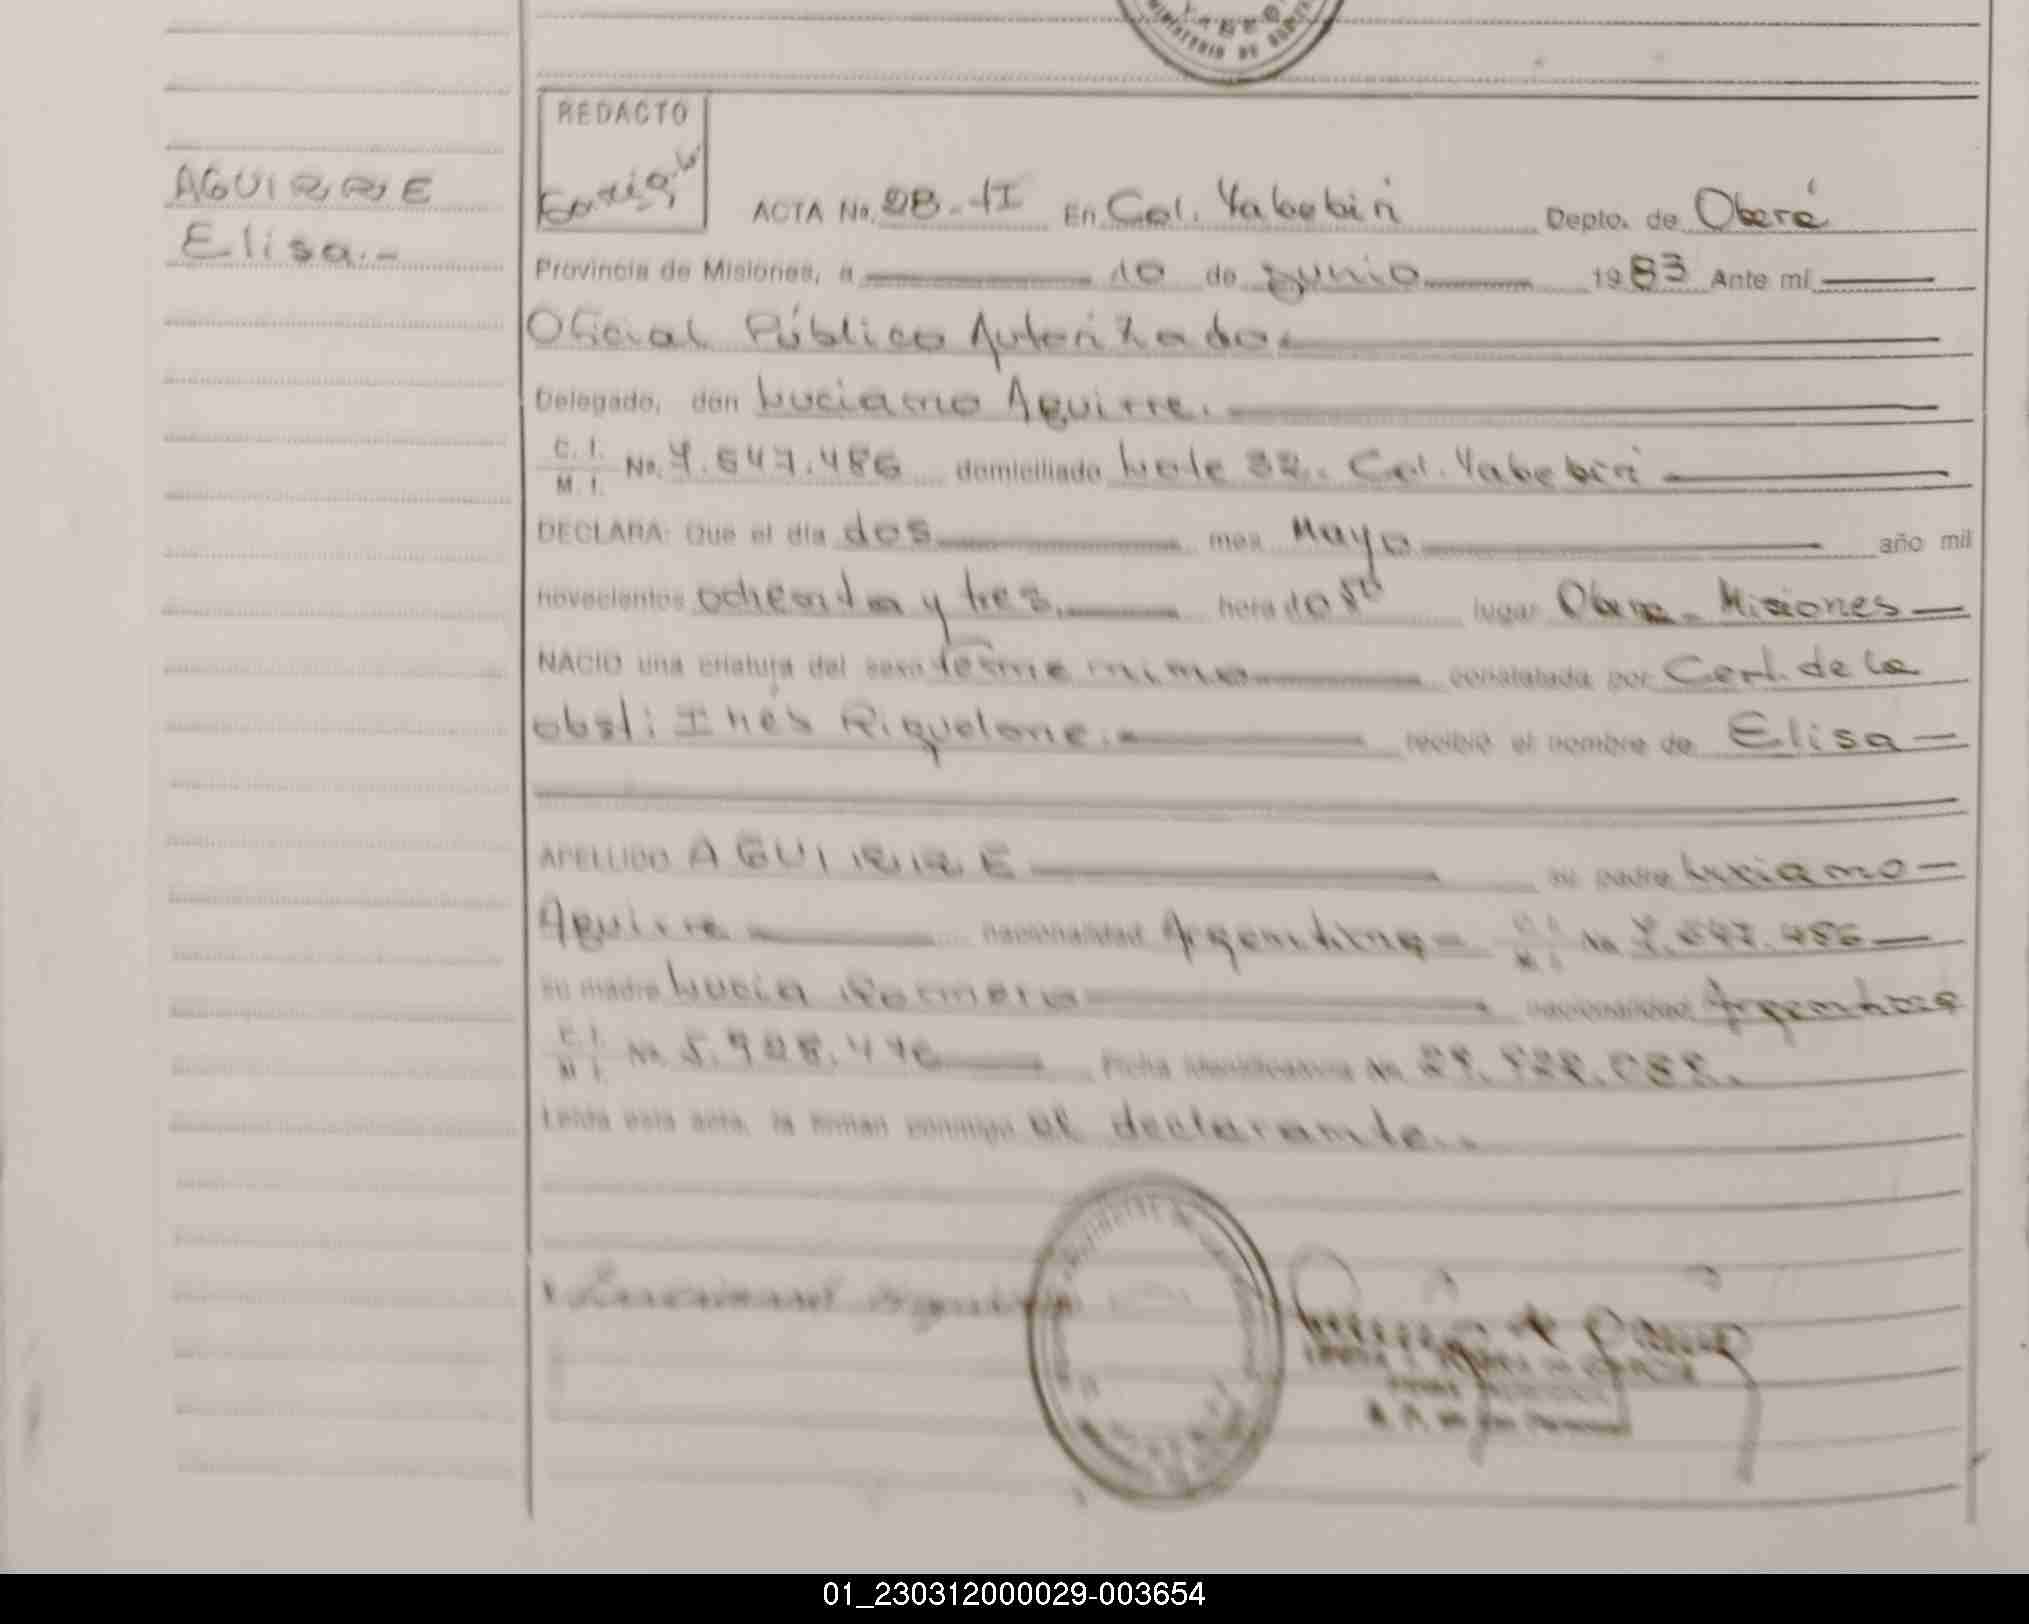 MINISTERIO DE
REDACTO
AGUIRRE
Elisa.-
ACTA No. 28-II En Col. Yabebirí Depto. de Oberá
Provincia de Misiones, a 10 de Junio 1983 Ante mí
Oficial Público Autorizado.
Delegado, don Luciano Aguirre.
C. I.
M. I. No. 7.647.486 domiciliado Lote 32. Col. Yabebirí
DECLARA: Que el día dos mes Mayo año mil
novecientos ochenta y tres. hora lugar Oberá - Misiones
NACIO una criatura del sexo femenino constatada por Cert. de la
obst: Inés Riquelme. recibió el nombre de Elisa
APELLIDO AGUIRRE su padre Luciano
Aguirre nacionalidad Argentina C. I.
M. I. No 7.647.486
su madre Lucía Romero nacionalidad Argentina
C. I.
M. I. No Ficha Identificativa No
Leída esta acta, la firman conmigo el declarante.
01_230312000029-003654